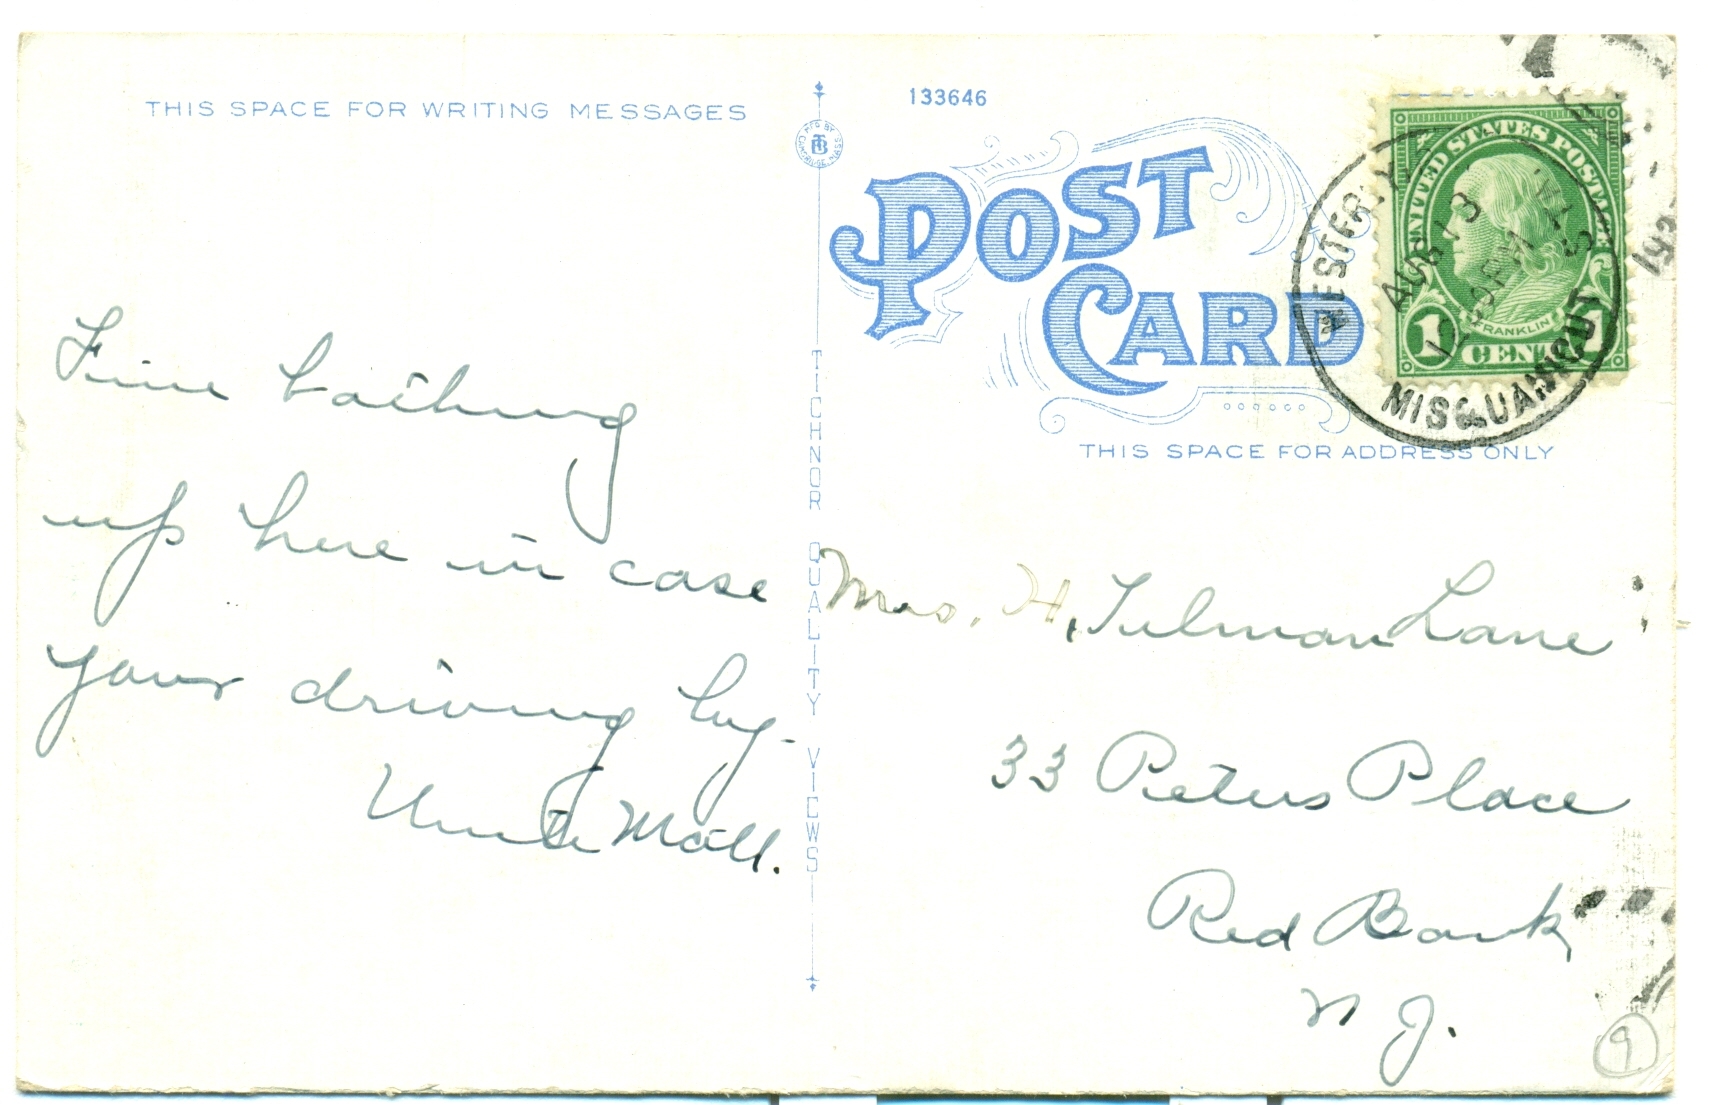 THIS SPACE FOR WRITING MESSAGES
Fine bathing
up here in case
your driving by-
Uncle Matt.
MFG BY
TB
CAMBRIDGE, MASS
TICHNOR QUALITY VIEWS
133646
POST
CARD
THIS SPACE FOR ADDRESS ONLY
UNITED STATES POSTAGE
FRANKLIN
1 CENT 1
WESTERLY
AUG 13
12 PM
MISQUAMICUT
Mrs. H. Tulman Lane
33 Peters Place
Red Bank
N J.
9